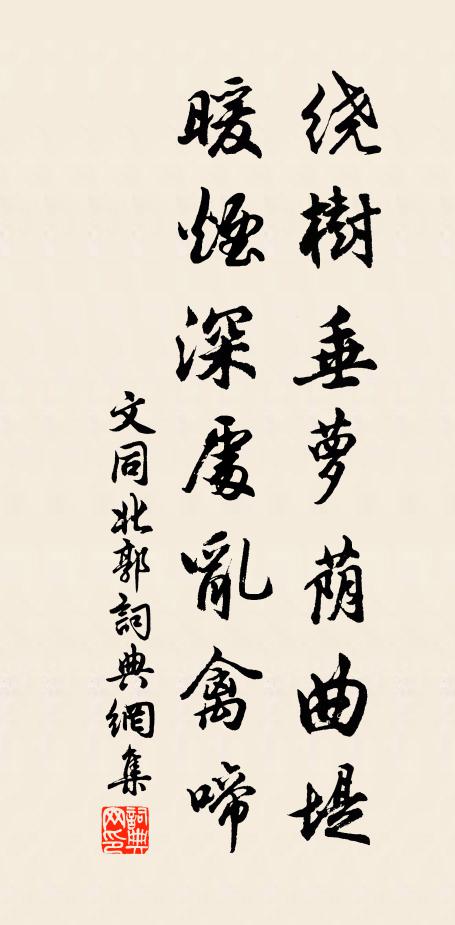 绕樹垂萝荫曲堤
暖煙深處亂禽啼
文同北郭詞典網集
詞典网印